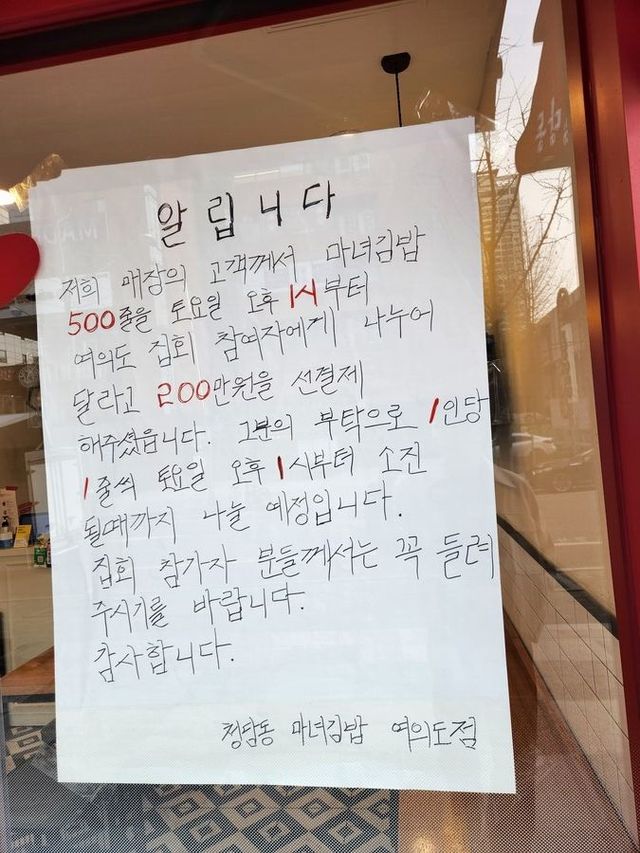 알립니다
저희 매장의 고객께서 마녀김밥
500줄을 토요일 오후 1시부터
여의도 집회 참여자에게 나누어
달라고 200만원을 선결제
해주셨읍니다. 그분의 부탁으로 1인당
1줄씩 토요일 오후 1시부터 소진
될때까지 나눌 예정입니다.
집회 참가자 분들께서는 꼭 들려
주시기를 바랍니다.
감사합니다.
청담동 마녀김밥 여의도점